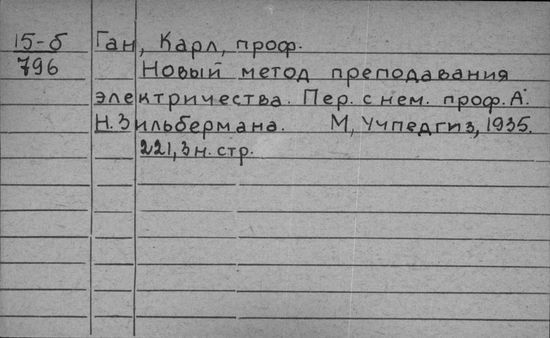 15-б Ган, Карл, проф.
796 Новый метод преподавания
электричества. Пер. с нем. проф. А.
Н. Зильбермана. М, Учпедгиз, 1935.
221, 3 н. стр.